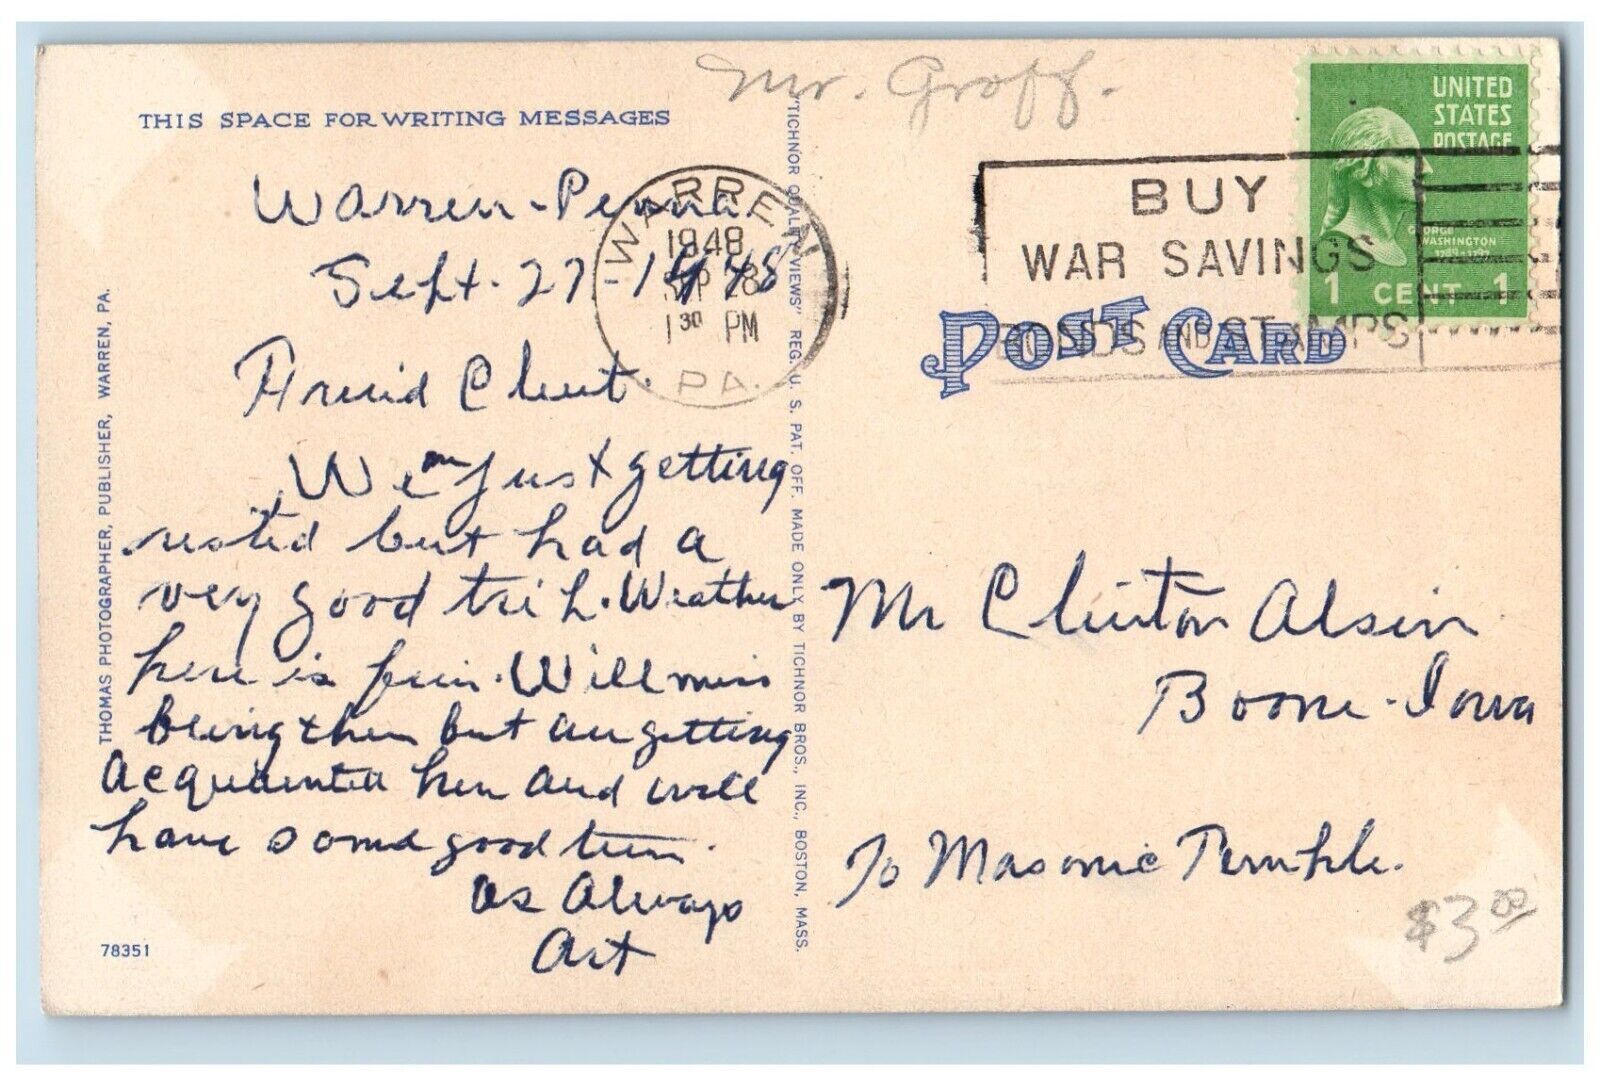 Mr. Groff.
THIS SPACE FOR WRITING MESSAGES
Warren - Penna
Sept. 27 - 1948
Friend Clint.
We am just getting
rested but had a
very good trip. Weather
here is fine. Will miss
being there but am getting
acquainted here and will
have some good time.
As Always
Art
78351
THOMAS PHOTOGRAPHER, PUBLISHER, WARREN, PA.
"TICHNOR QUALITY VIEWS" REG. U. S. PAT. OFF. MADE ONLY BY TICHNOR BROS., INC., BOSTON, MASS.
WARREN
1948
SEP 28
1 30 PM
PA.
BUY
WAR SAVINGS
BONDS AND STAMPS
UNITED
STATES
POSTAGE
GEORGE
WASHINGTON
1 CENT 1
POST CARD
Mr Clinton Alsin
Boone - Iowa
To Masonic Temple.
$3.00